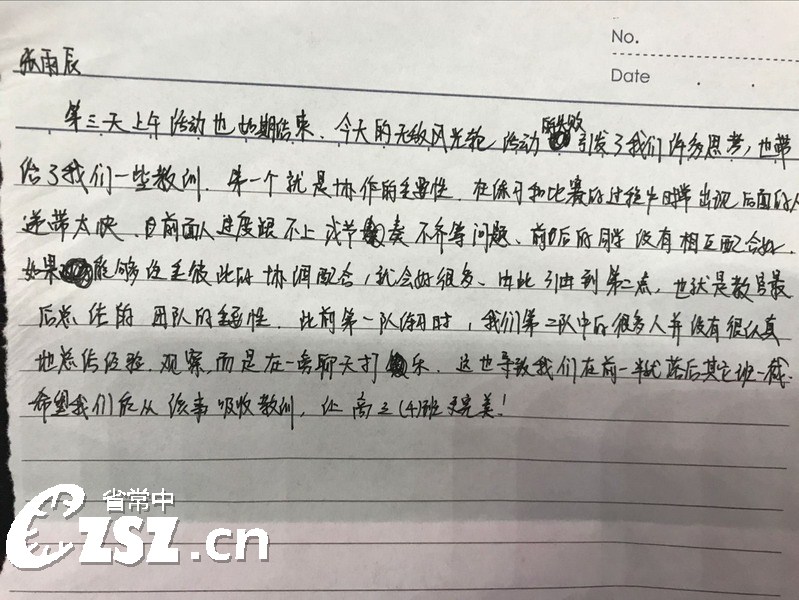 No.
Date
张雨辰
第三天上午活动也如期结束。今天的无敌风光轮活动的失败引发了我们许多思考，也带
给了我们一些教训。第一个就是协作的重要性。在练习和比赛的过程中时常出现后面的人
递带太快，目前面人进度跟不上或节奏不齐等问题、前后的同学没有相互配合好。
如果能够注重彼此的协调配合，就会好很多。由此引出到第二点，也就是教官最
后总结的团队的重要性。此前第一队练习时，我们第二队中的很多人并没有很认真
地总结经验、观察，而是在一旁聊天打乐。这也导致我们在前一半就落后其它班一截。
希望我们能从该事吸收教训，让高三(4)班更完美！
省常中
CZSZ.cn